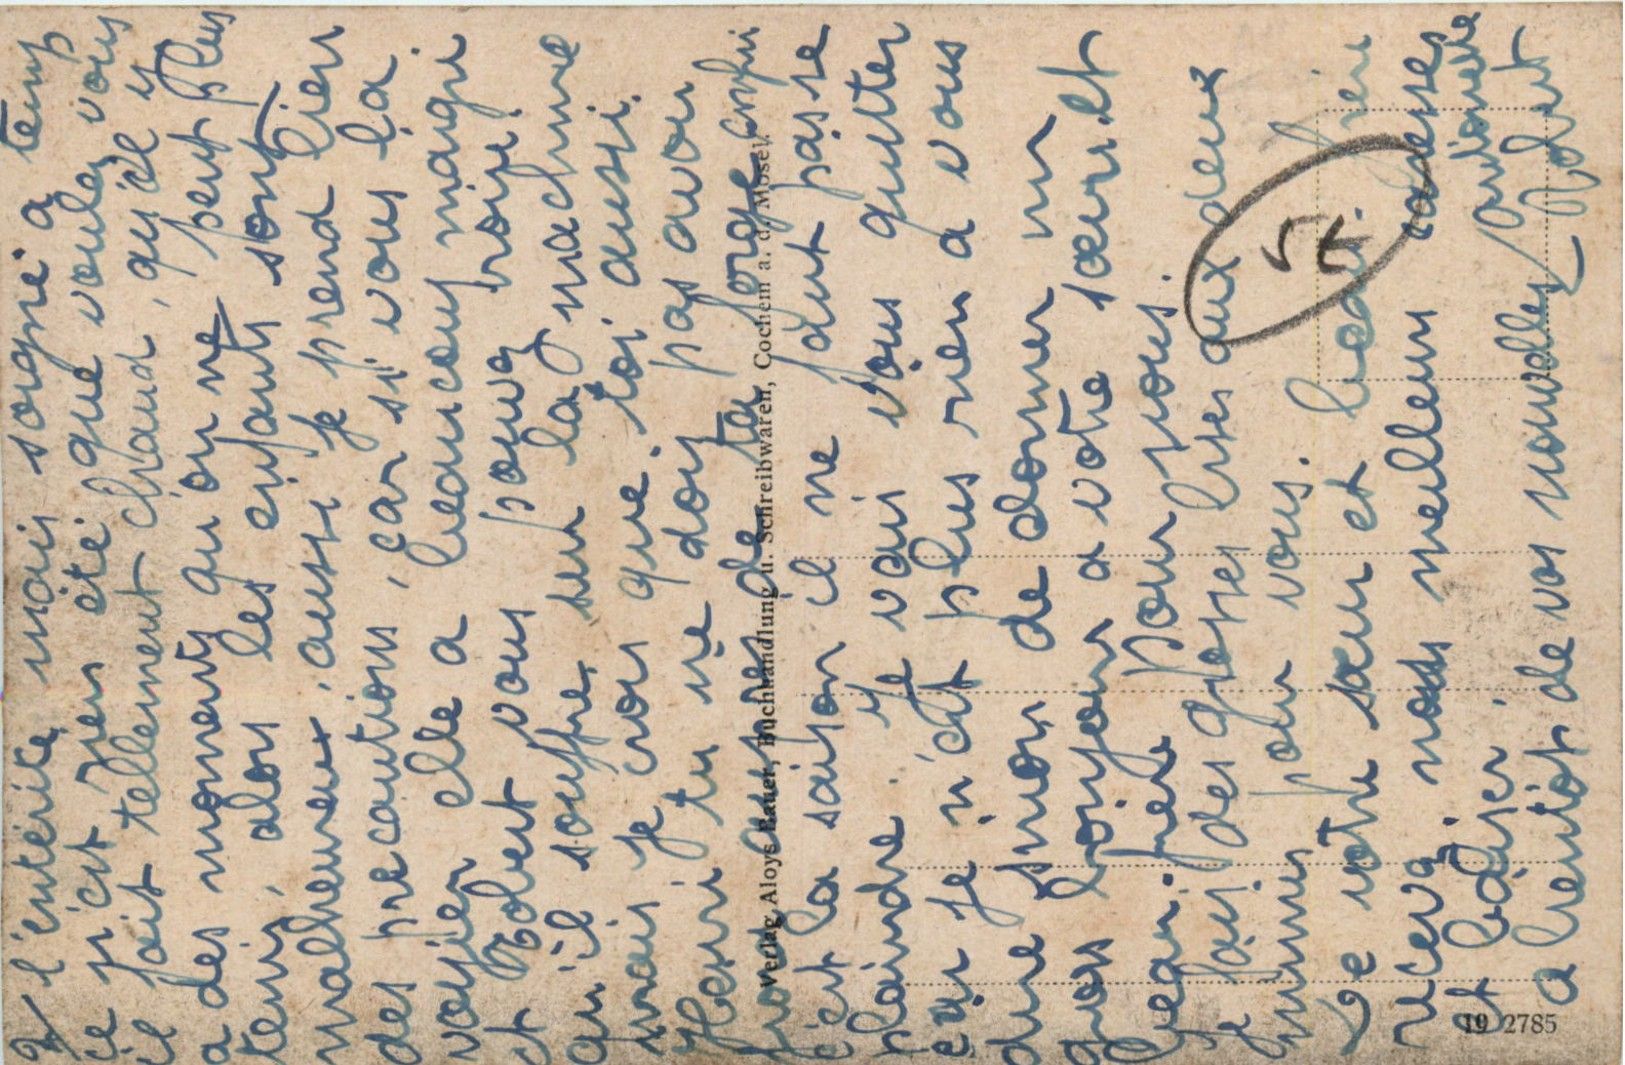 l'entérite, mais soigné a temp
ce n'est rien été. que voulez vous
il fait tellement chaud, qu'il y
a des moments qu'on ne peut plus
tenir, alors les enfants sont
malheureux. aussi je prend bien
des precautions, car si vous la
voyier elle a beaucoup maigri
et Robert vous pouvez croire
qu'il souffre, sur la machine
mais je crois que toi aussi.
Henri tu ne dois pas avoir
de ta forge enfin
c'est la saison il ne faut pas se
plaindre. Je vais vous quitter
car je n'ai plus rien a vous
dire sinon de donner un
gros bonjour a votre sœur et
beau. frère pour nous.
Je fais des grosses bises aux deux
pour vous.
De votre sœur et beau. frère
recevez nous meilleurs caresses
et baiser. Antoinette
a bientôt de vos nouvelles Robert
54
Verlag Aloys Bauer, Buchhandlung u. Schreibwaren, Cochem a. d. Mosel.
19 2785